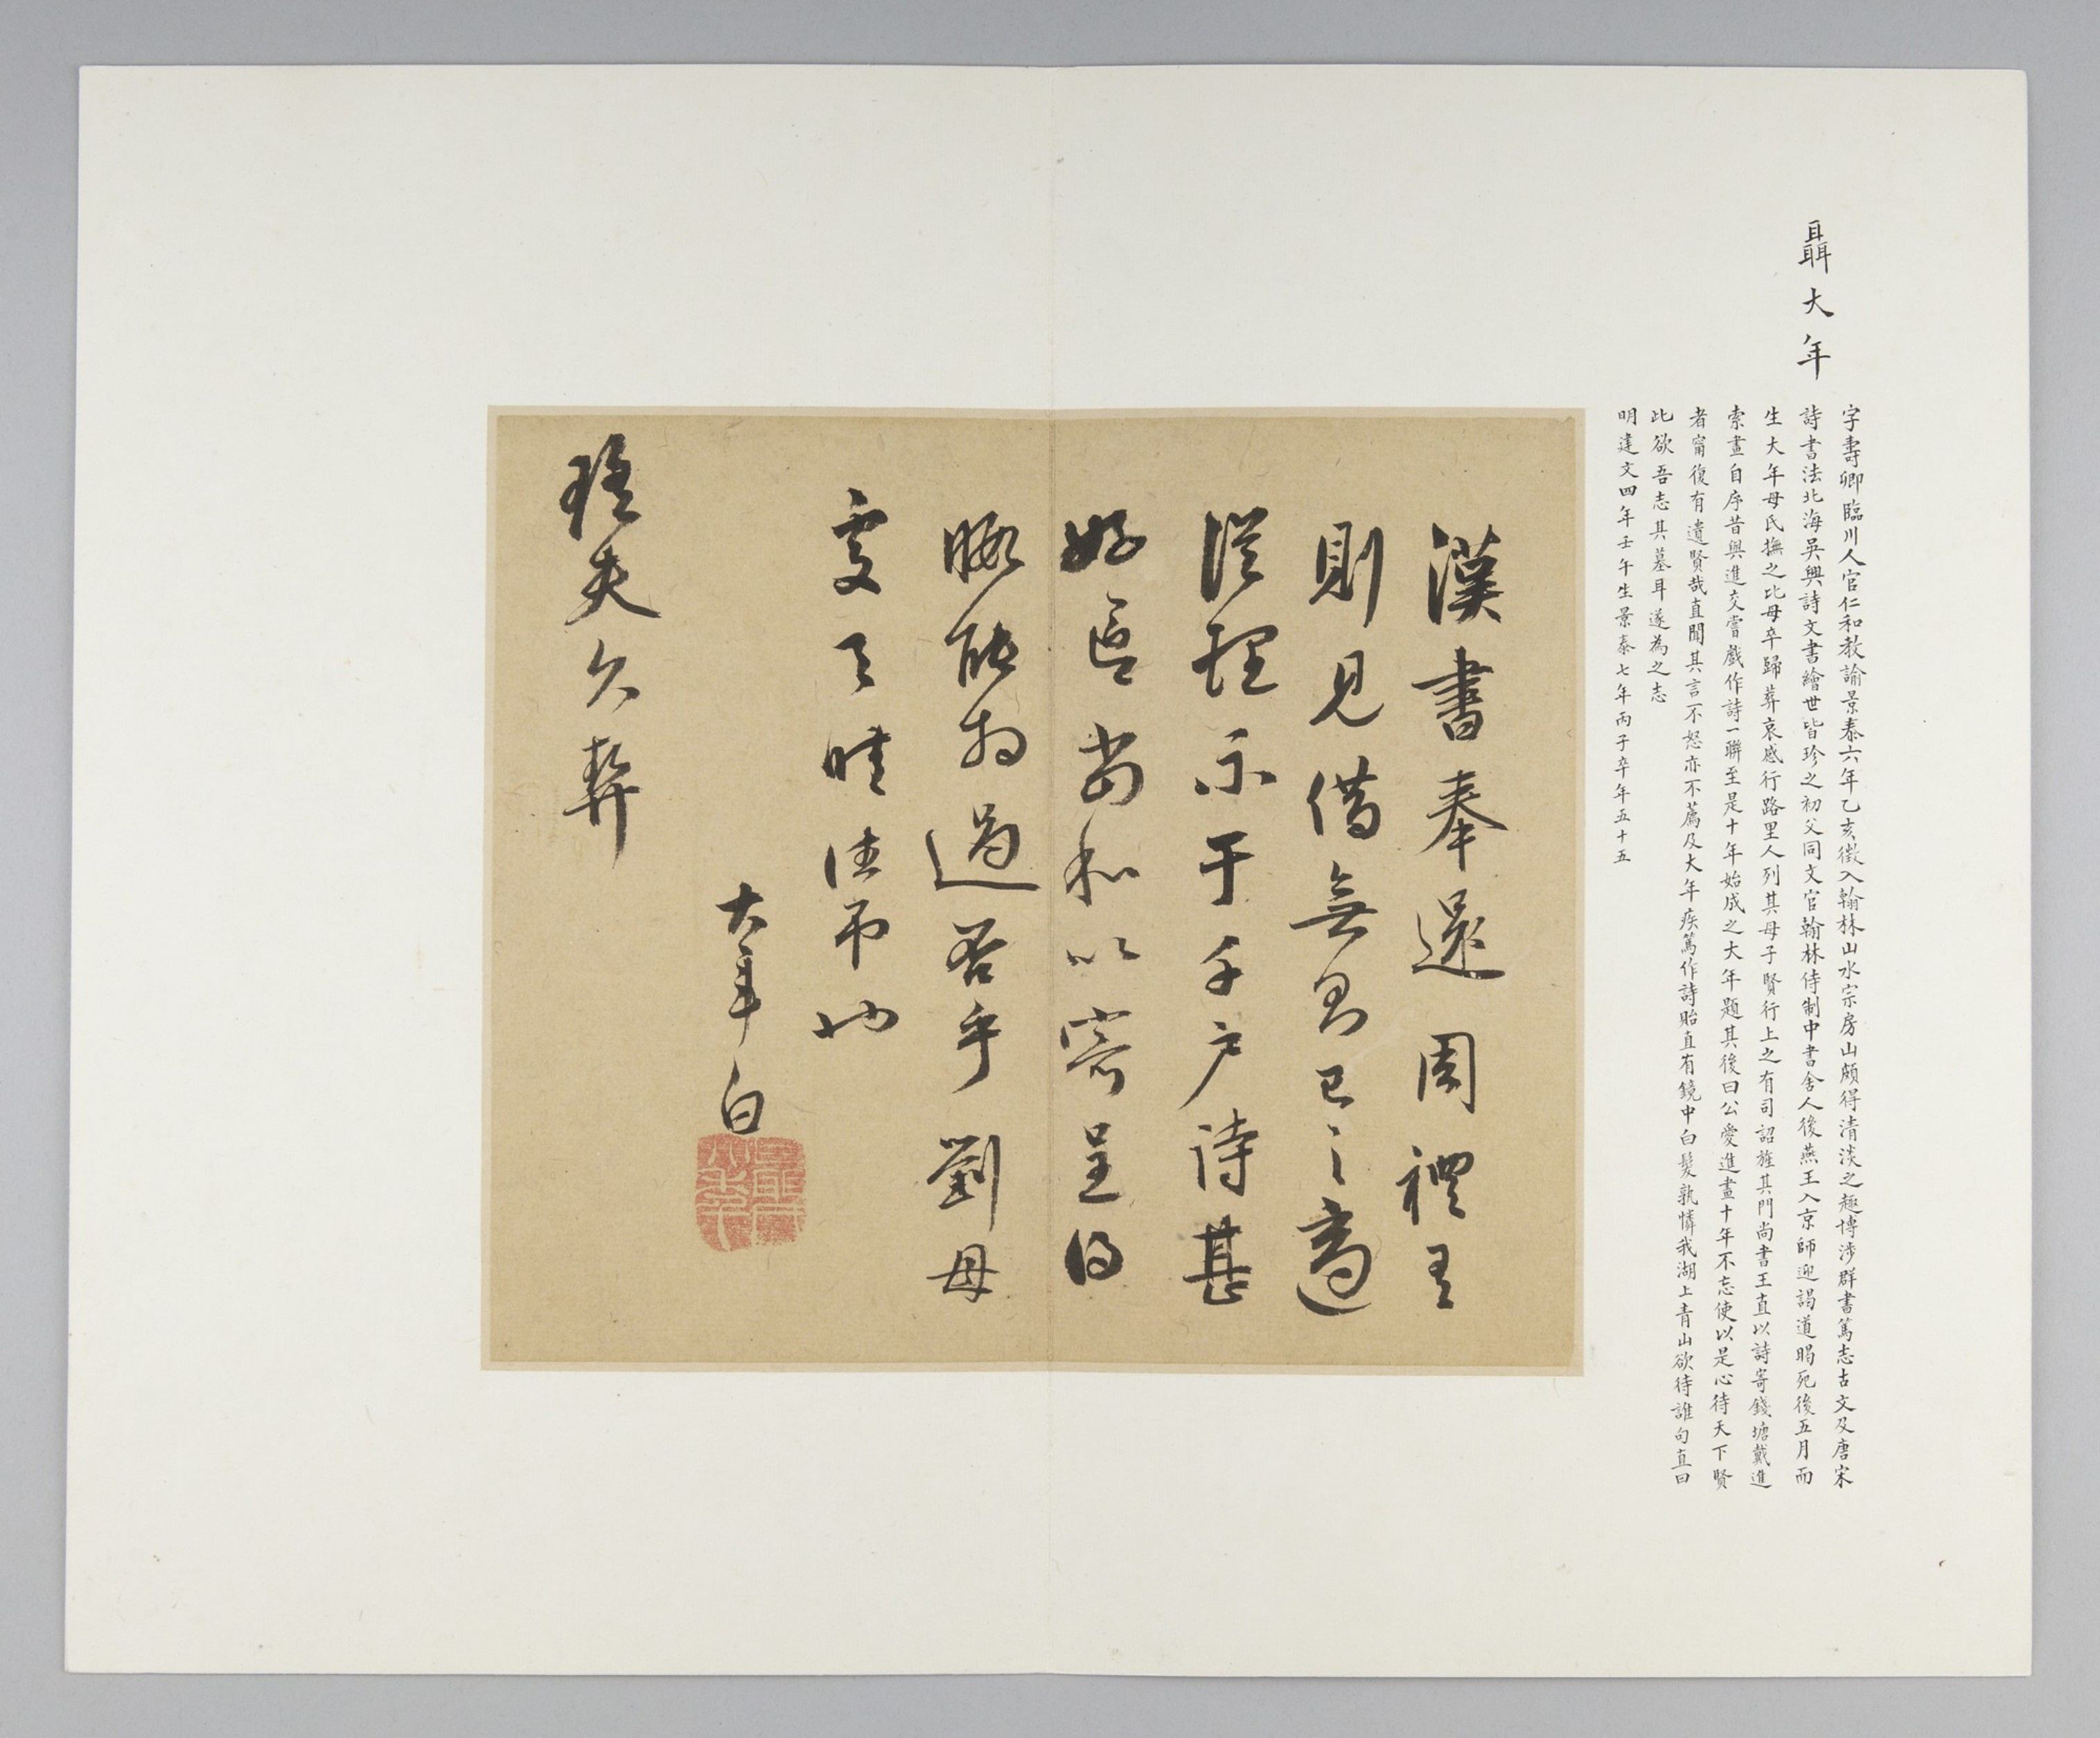 聶大年
字壽卿臨川人官仁和教諭景泰六年乙亥徵入翰林山水宗房山頗得清淡之趣博涉群書篤志古文及唐宋
詩書法北海吳興詩文書繪世皆珍之初父同文官翰林侍制中書舍人後燕王入京師迎謁道暍死後五月而
生大年母氏撫之比母卒歸葬哀感行路里人列其母子賢行上之有司詔旌其門尚書王直以詩寄錢塘戴進
索畫自序昔與進交嘗戲作詩一聯至是十年始成之大年題其後曰公愛進畫十年不忘使以是心待天下賢
者甯復有遺賢哉直聞其言不怒亦不薦及大年疾篤作詩貽直有鏡中白髮孰憐我湖上青山欲待誰句直曰
此欲吾志其墓耳遂為之志
明建文四年壬午生景泰七年丙子卒年五十五
漢書奉還周禮有
則見借無則已已適
從理示于千戶詩甚
好區尚和以寄呈日
晚能相過否乎劉母
處天晴往弔也
大年白
廷夫久契